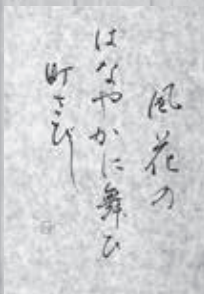 風花の
はなやかに舞ひ
町さびし